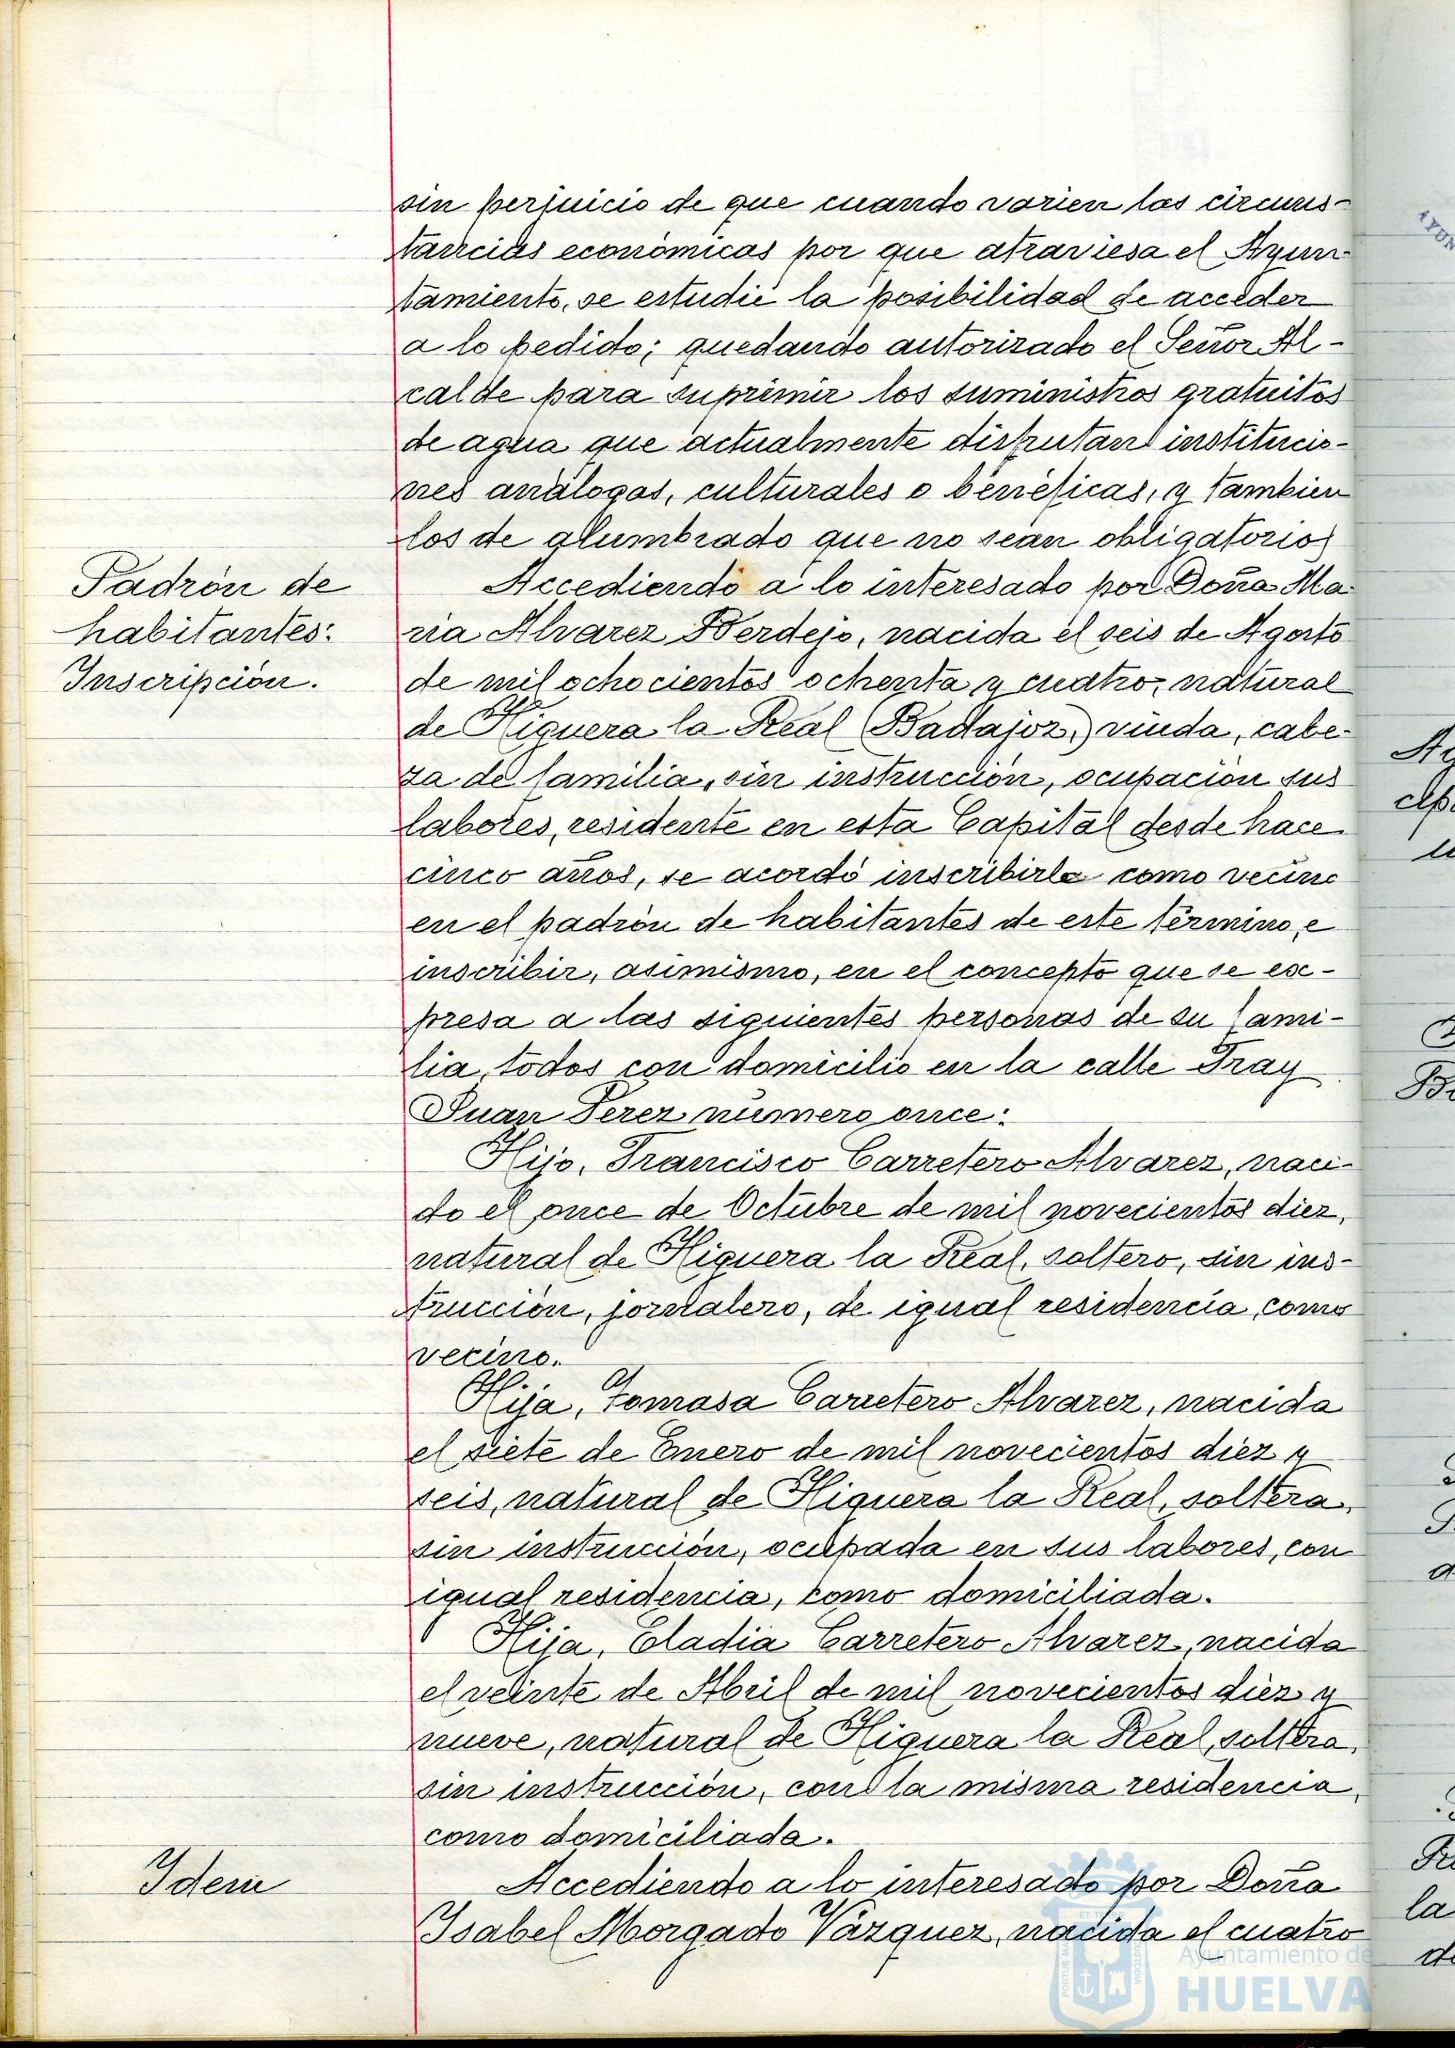 sin perjuicio de que cuando varien las circuns-
tancias económicas por que atraviesa el Ayun
tamiento, se estudie la posibilidad de acceder
a lo pedido; quedando autorizado el Señor Al-
calde para suprimir los suministros gratuitos
de agua que actualmente disfrutan institucio-
nes análogas, culturales o benéficas, y tambien
los de alumbrado que no sean obligatorios
Padrón de
habitantes:
Inscripción.
Accediendo a lo interesado por Doña Ma-
ria Alvarez Berdejo, nacida el seis de Agosto
de mil ochocientos ochenta y cuatro, natural
de Higuera la Real (Badajoz,) viuda, cabe-
za de familia, sin instrucción, ocupación sus
labores, residente en esta Capital desde hace
cinco años, se acordó inscribirla como vecino
en el padrón de habitantes de este término, e
inscribir, asimismo, en el concepto que se ex-
presa a las siguientes personas de su fami-
lia, todos con domicilio en la calle Fray
Juan Perez número once:
Hijo, Francisco Carretero Alvarez, naci-
do el once de Octubre de mil novecientos diez,
natural de Higuera la Real, soltero, sin ins-
trucción, jornalero, de igual residencia, como
vecino.
Hija, Tomasa Carretero Alvarez, nacida
el siete de Enero de mil novecientos diez y
seis, natural de Higuera la Real, soltera,
sin instrucción, ocupada en sus labores, con
igual residencia, como domiciliada.
Hija, Eladia Carretero Alvarez, nacida
el veinte de Abril de mil novecientos diez y
nueve, natural de Higuera la Real, soltera,
sin instrucción, con la misma residencia,
como domiciliada.
Idem
Accediendo a lo interesado por Doña
Isabel Morgado Vázquez, nacida el cuatro
Ayuntamiento de
HUELVA